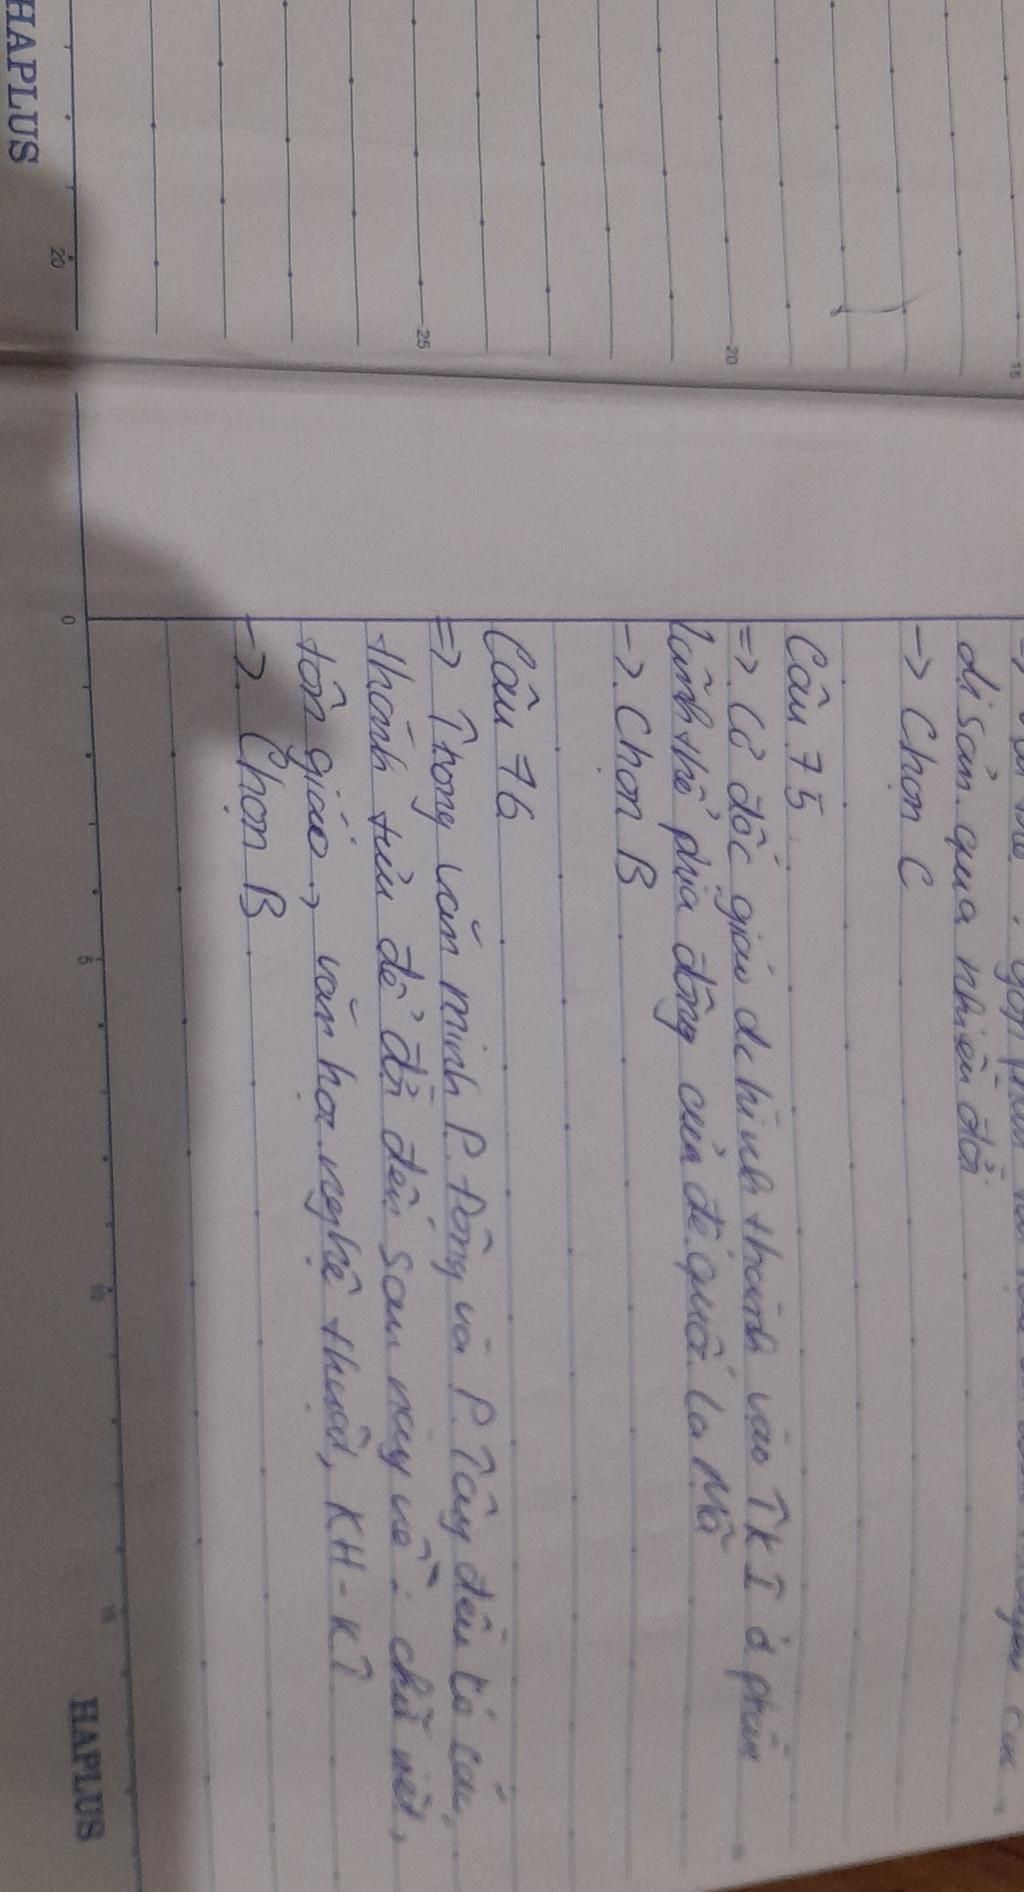 di sản qua nhiều đời
-> Chọn C
Câu 75
=> Cơ đốc giáo dc hình thành vào TK I ở phần
lãnh thổ phía đông của đế quốc La Mã
-> Chọn B
Câu 76
=> Trong văn minh P. Đông và P. Tây đều có các
thành tựu để đời đến sau này về: chữ viết,
tôn giáo, văn hoá nghệ thuật, KH - KT
-> Chọn B
HAPLUS
HAPLUS
20
25
20
15
0
5
10
15